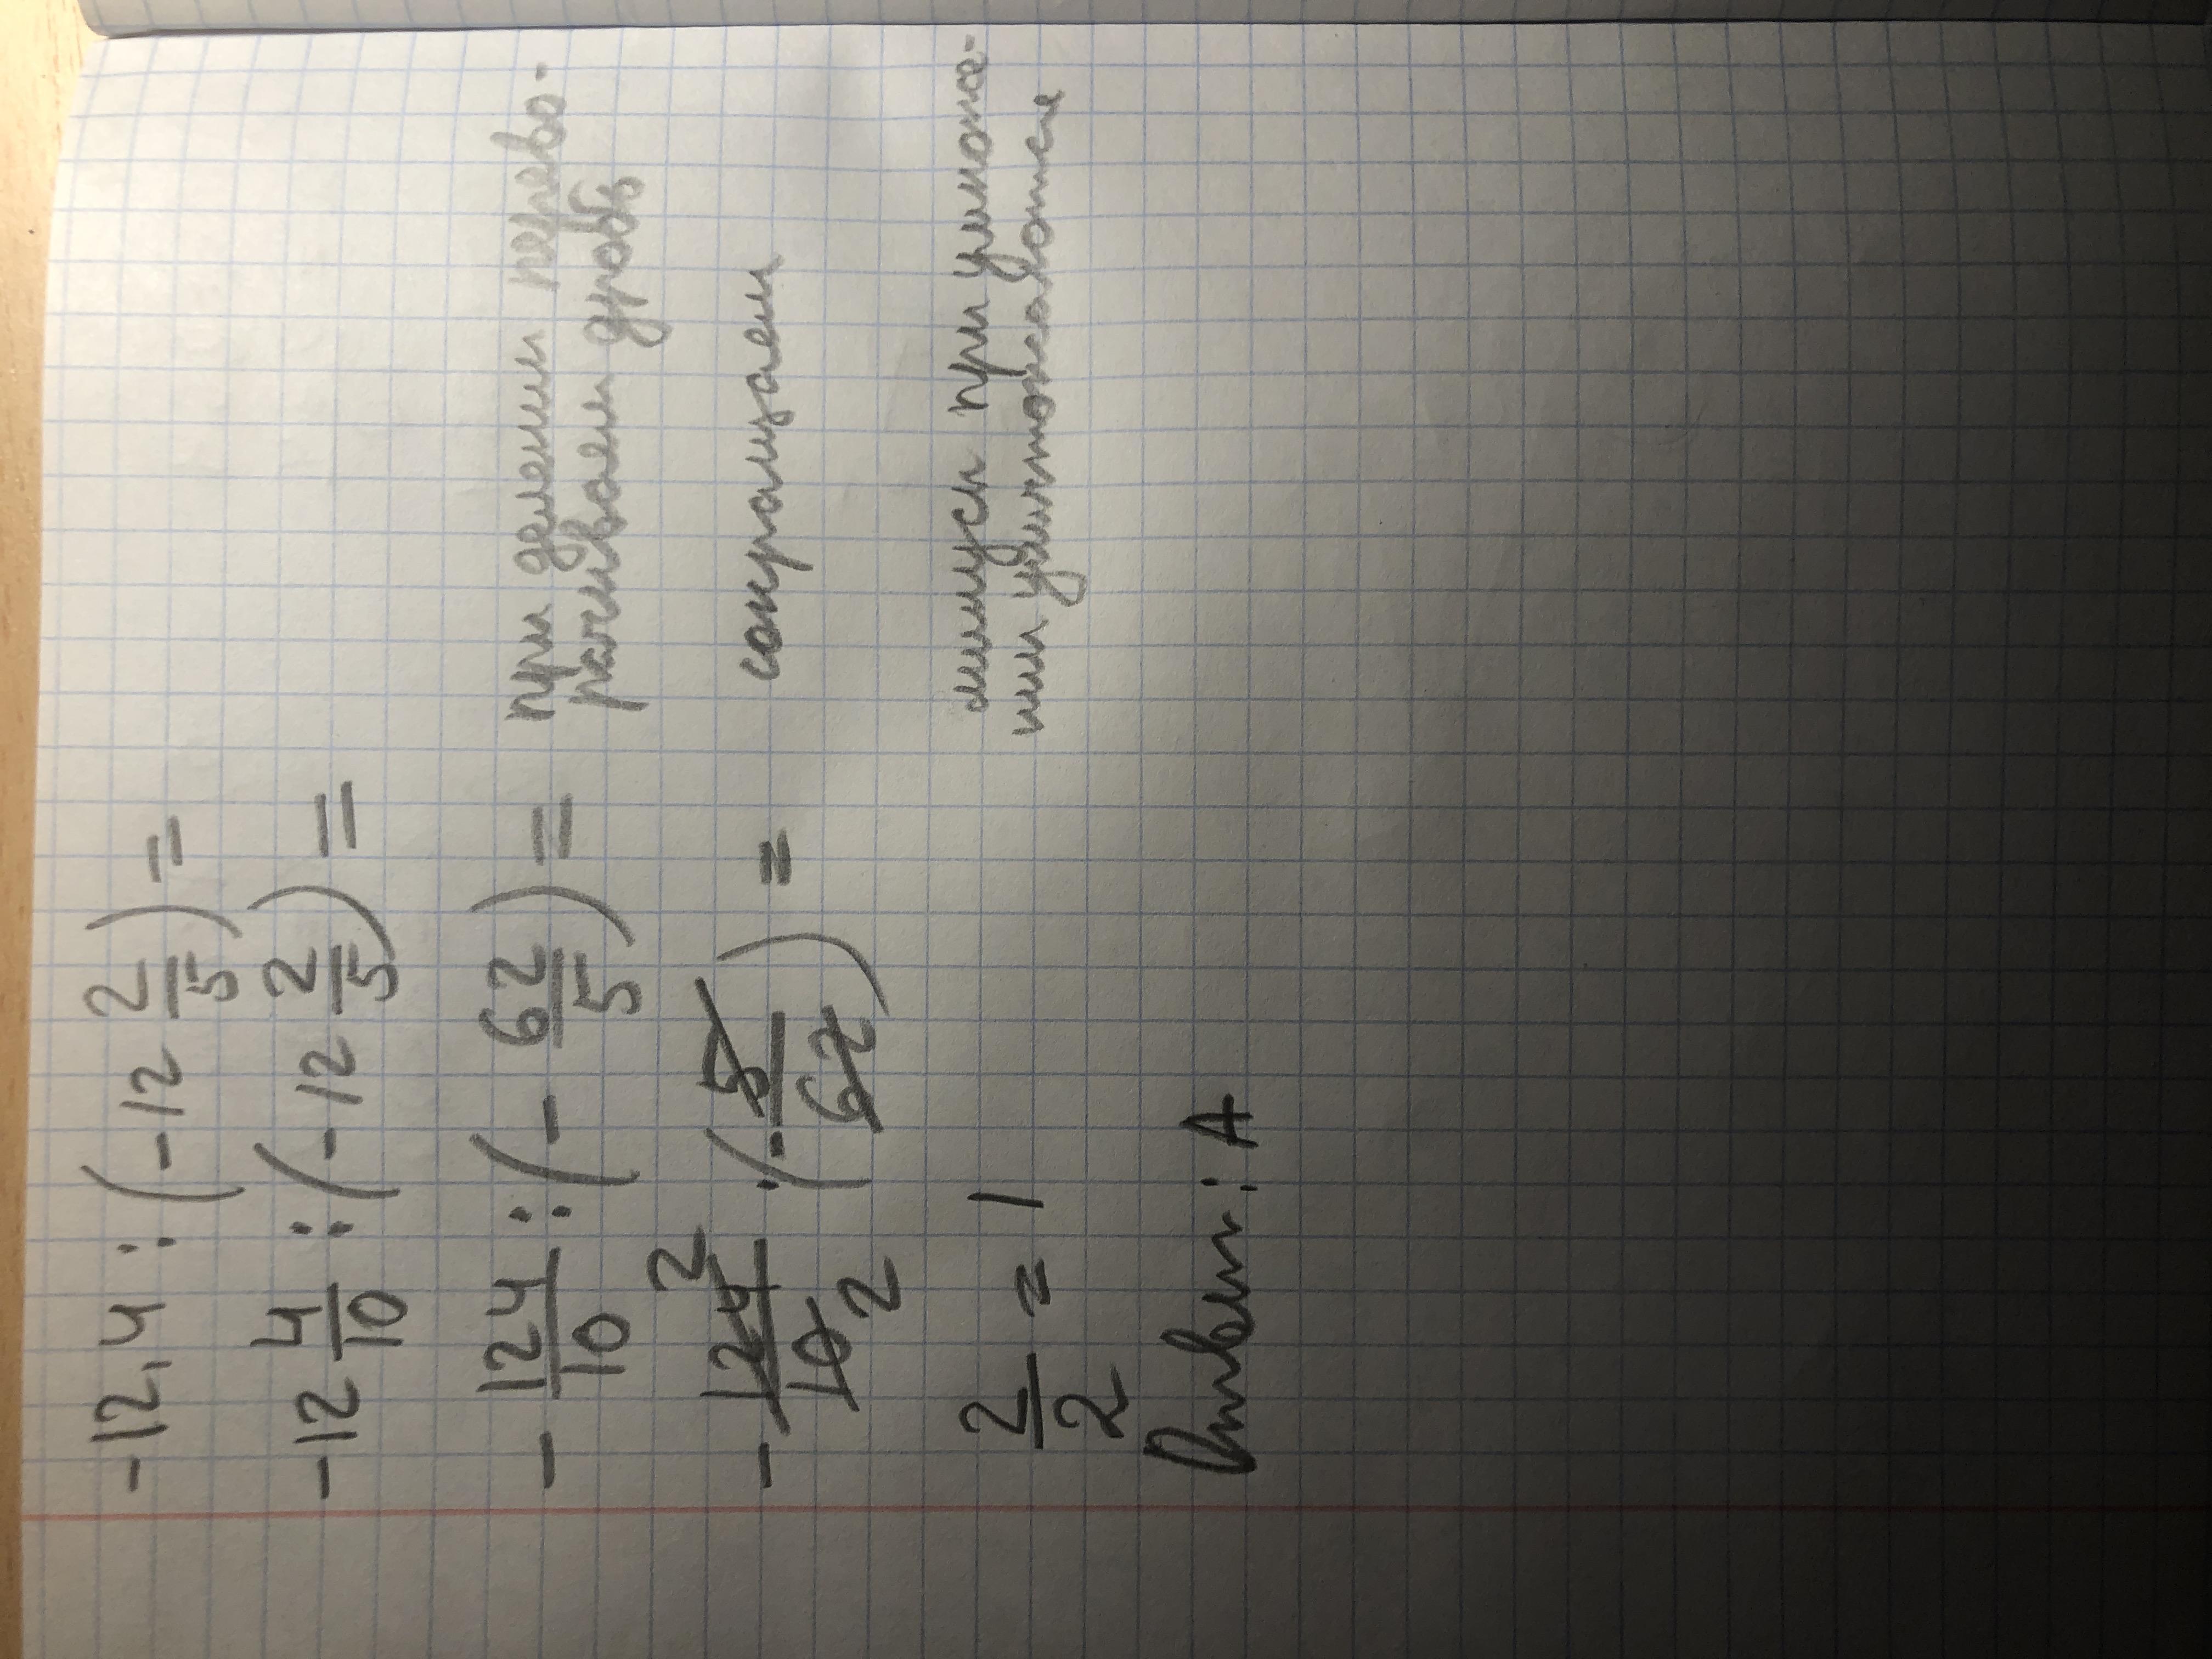 -12,4 : (-12 2/5) =
-12 4/10 : (-12 2/5) =
- 124/10 : (- 62/5) = при делении перево-
рачиваем дробь
- 124/10 · (- 5/62) = сокращаем
2
2
2/2 = 1 минусы при умноже-
нии уничтожаются
Ответ: А